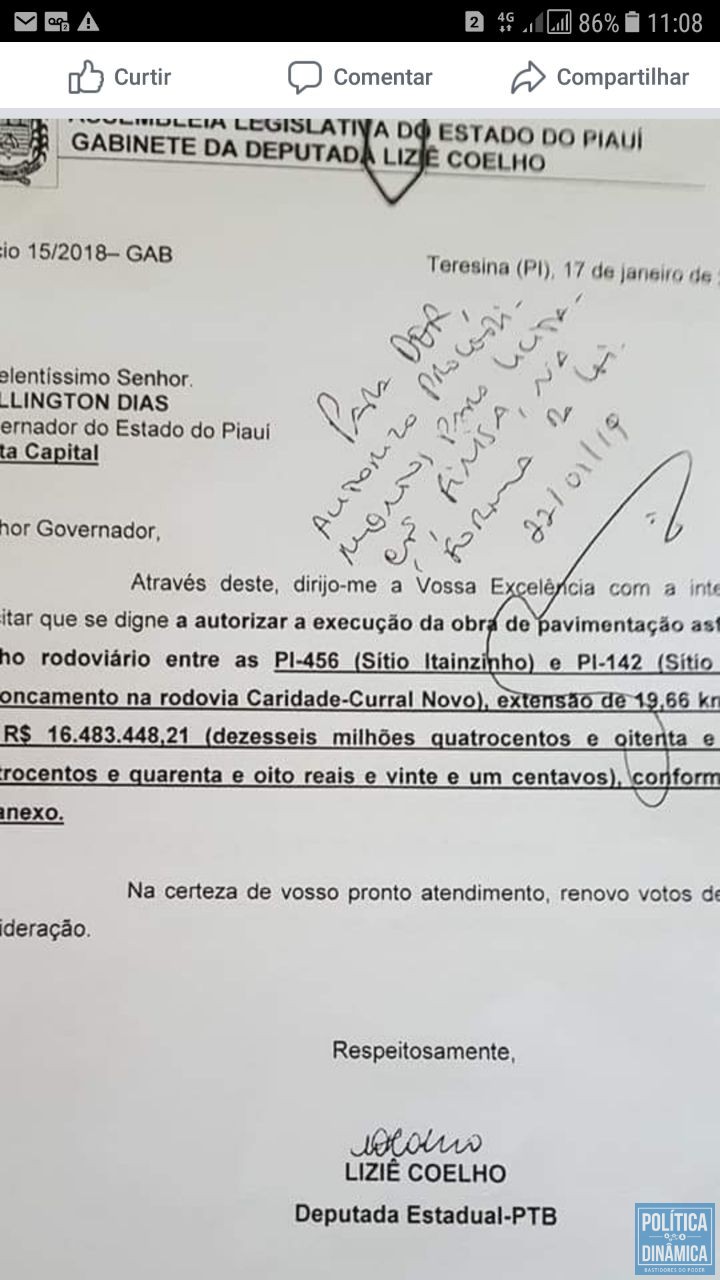 2 4G 86% 11:08
Curtir Comentar Compartilhar
ASSEMBLEIA LEGISLATIVA DO ESTADO DO PIAUÍ
GABINETE DA DEPUTADA LIZIÊ COELHO
cio 15/2018– GAB
Teresina (PI), 17 de janeiro de
Para DER,
Autorizo procedi-
mentos para licita-
FINISA, na
forma da Lei.
22/01/19
elentíssimo Senhor.
LLINGTON DIAS
ernador do Estado do Piauí
ta Capital
hor Governador,
Através deste, dirijo-me a Vossa Excelência com a inte
citar que se digne a autorizar a execução da obra de pavimentação asf
ho rodoviário entre as PI-456 (Sítio Itainzinho) e PI-142 (Sítio
oncamento na rodovia Caridade-Curral Novo), extensão de 19,66 km
R$ 16.483.448,21 (dezesseis milhões quatrocentos e oitenta e
trocentos e quarenta e oito reais e vinte e um centavos), conform
anexo.
Na certeza de vosso pronto atendimento, renovo votos de
ideração.
Respeitosamente,
LIZIÊ COELHO
Deputada Estadual-PTB
POLÍTICA
DINÂMICA
BASTIDORES DO PODER